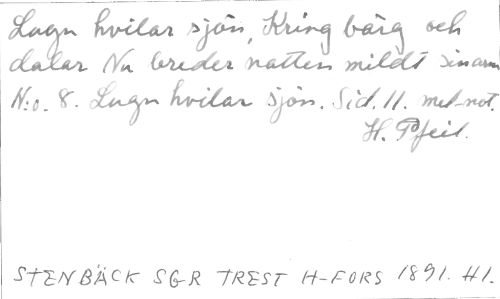 Lugn hvilar sjön, Kring bärg och
dalar Nu breder natten mildt sin arm
N:o. 8. Lugn hvilar sjön. Sid. 11. mel-not.
H. Pfeil.
STENBÄCK SGR TREST H-FORS 1891. H1.